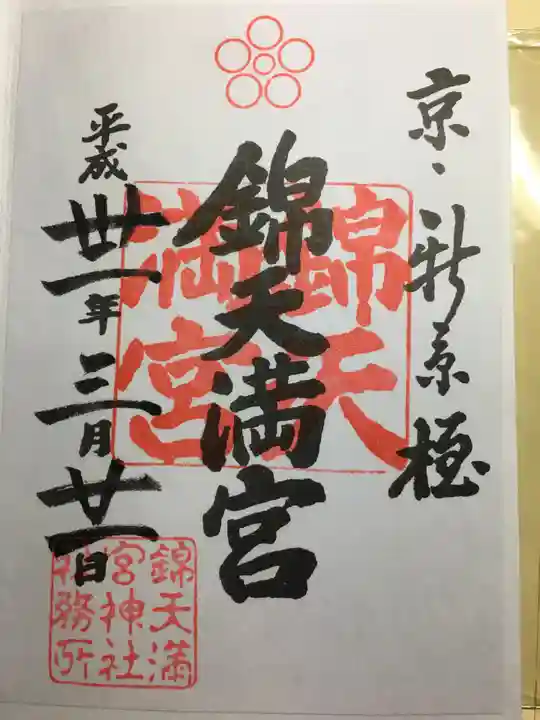 京・新京極
錦天満宮
平成卅一年三月廿一日
錦天
満宮
錦天満
宮神社
社務所